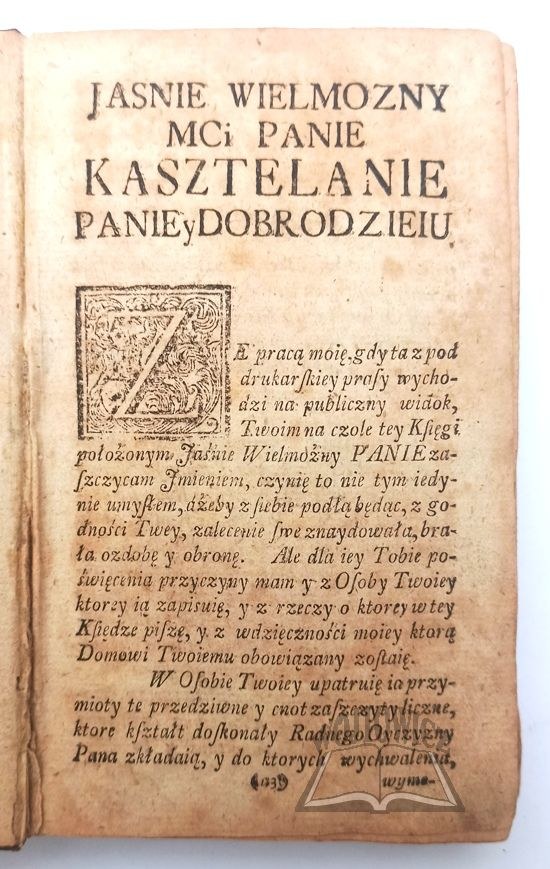 JASNIE WIELMOZNY
MCi PANIE
KASZTELANIE
PANIE y DOBRODZIEIU
ZE pracą moię, gdy ta z pod
drukarſkiey praſy wycho-
dzi na publiczny widok,
Twoim na czole tey Kſięgi
położonym Jaśnie Wielmożny PANIE za-
ſzczycam Jmieniem, czynię to nie tym iedy-
nie umyſłem, ażeby z ſiebie podłą będąc, z go-
dności Twey, zalecenie ſwe znaydowała, bra-
ła ozdobę y obronę. Ale dla iey Tobie po-
święcenia przyczyny mam y z Oſoby Twoiey
ktorey ią zapiſuię, y z rzeczy o ktorey w tey
Kſiędze piſzę, y z wdzięczności moiey ktorą
Domowi Twoiemu obowiązany zoſtaię.
W Oſobie Twoiey upatruię ia przy-
mioty te przedziwne y cnot zaſzczyty liczne,
ktore kſztałt doſkonały Radnego Oyczyzny
Pana zkładaią, y do ktorych wychwalenia,
wymo-